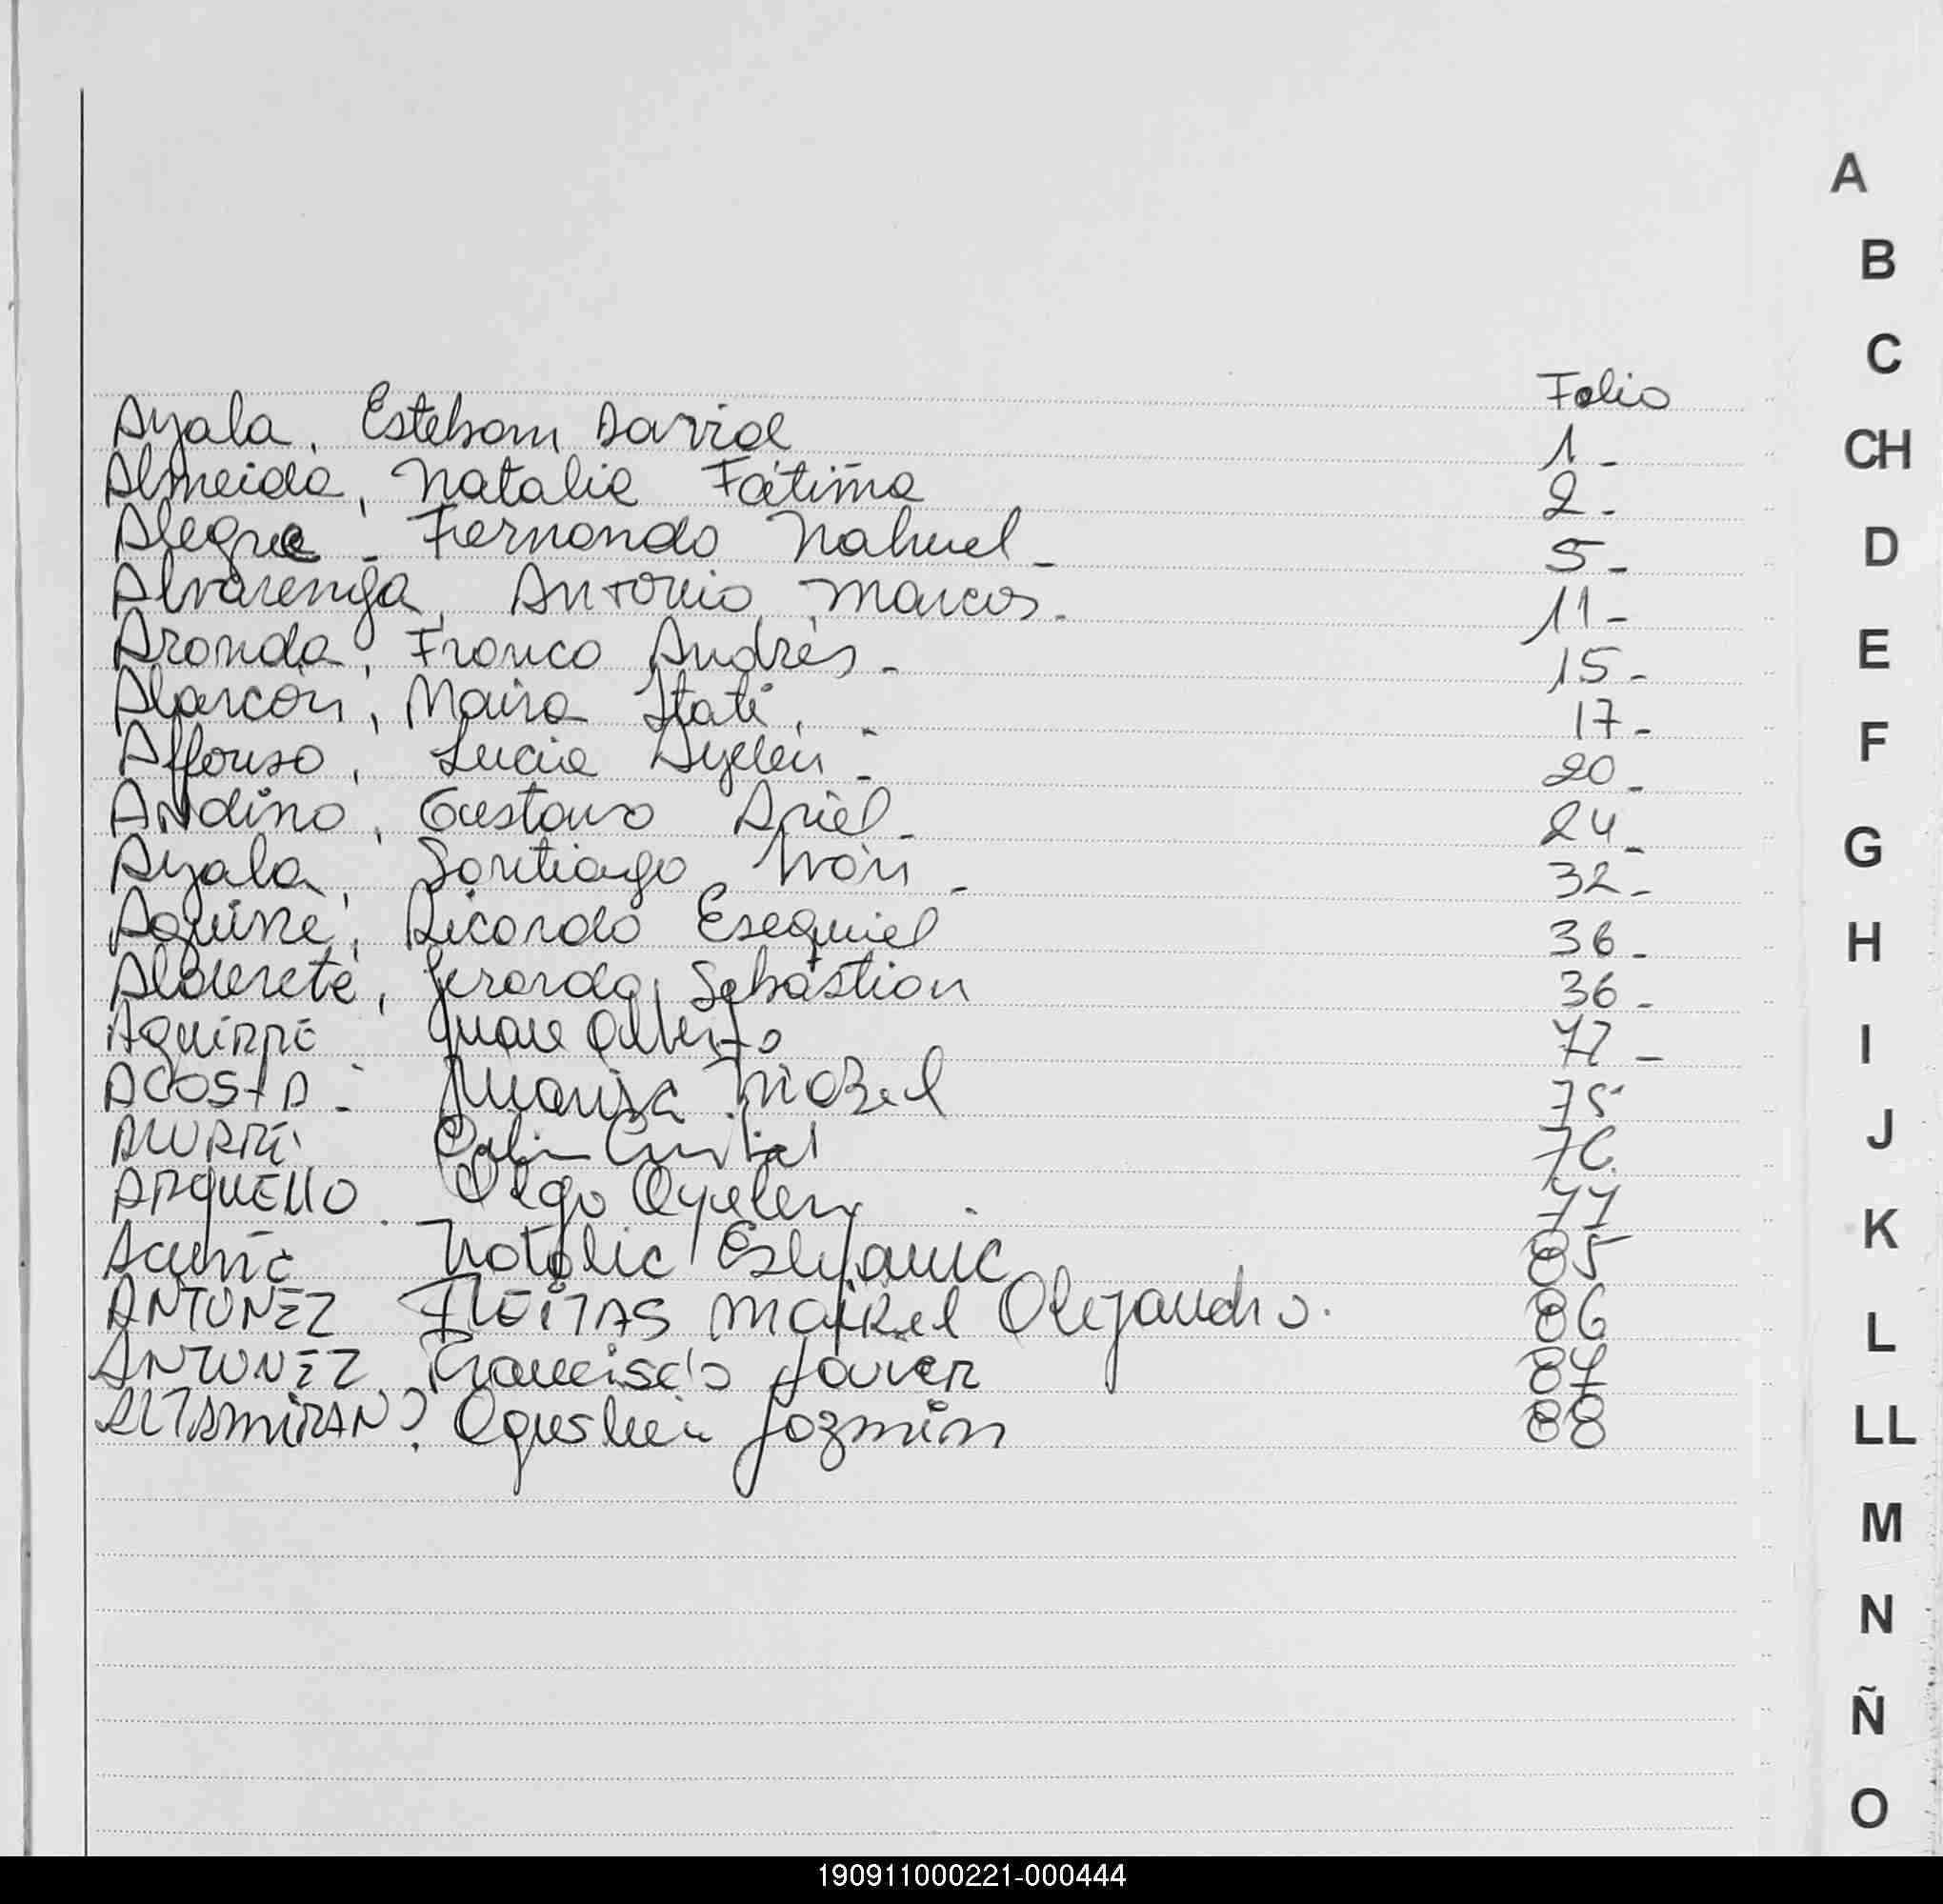 Folio
Ayala, Esteban David 1-
Almeida, Natalia Fátima 2-
Alegre - Fernando Nahuel - 5-
Alvarenga, Antonio Marcos - 11-
Aranda, Franco Andrés - 15-
Alarcón, Maira Itatí, - 17-
Affonso, Lucia Ayelén - 20-
Andino, Gustavo Ariel - 24-
Ayala, Santiago Iván - 32-
Aguirre, Ricardo Esequiel 36-
Alderete, Gerardo Sebastian 36-
Aguirre Juan Alberto -
ACOSTA - 75
76
ARGUELLO Olga Ayelen 77
Acuña Natalia Estefania 85
ANTUNEZ FLEITAS Maikel Alejandro. 86
ANTUNEZ Francisco Javier 87
ALTAMIRANO Agustina Jazmin 88
A
B
C
CH
D
E
F
G
H
I
J
K
L
LL
M
N
Ñ
O
190911000221-000444